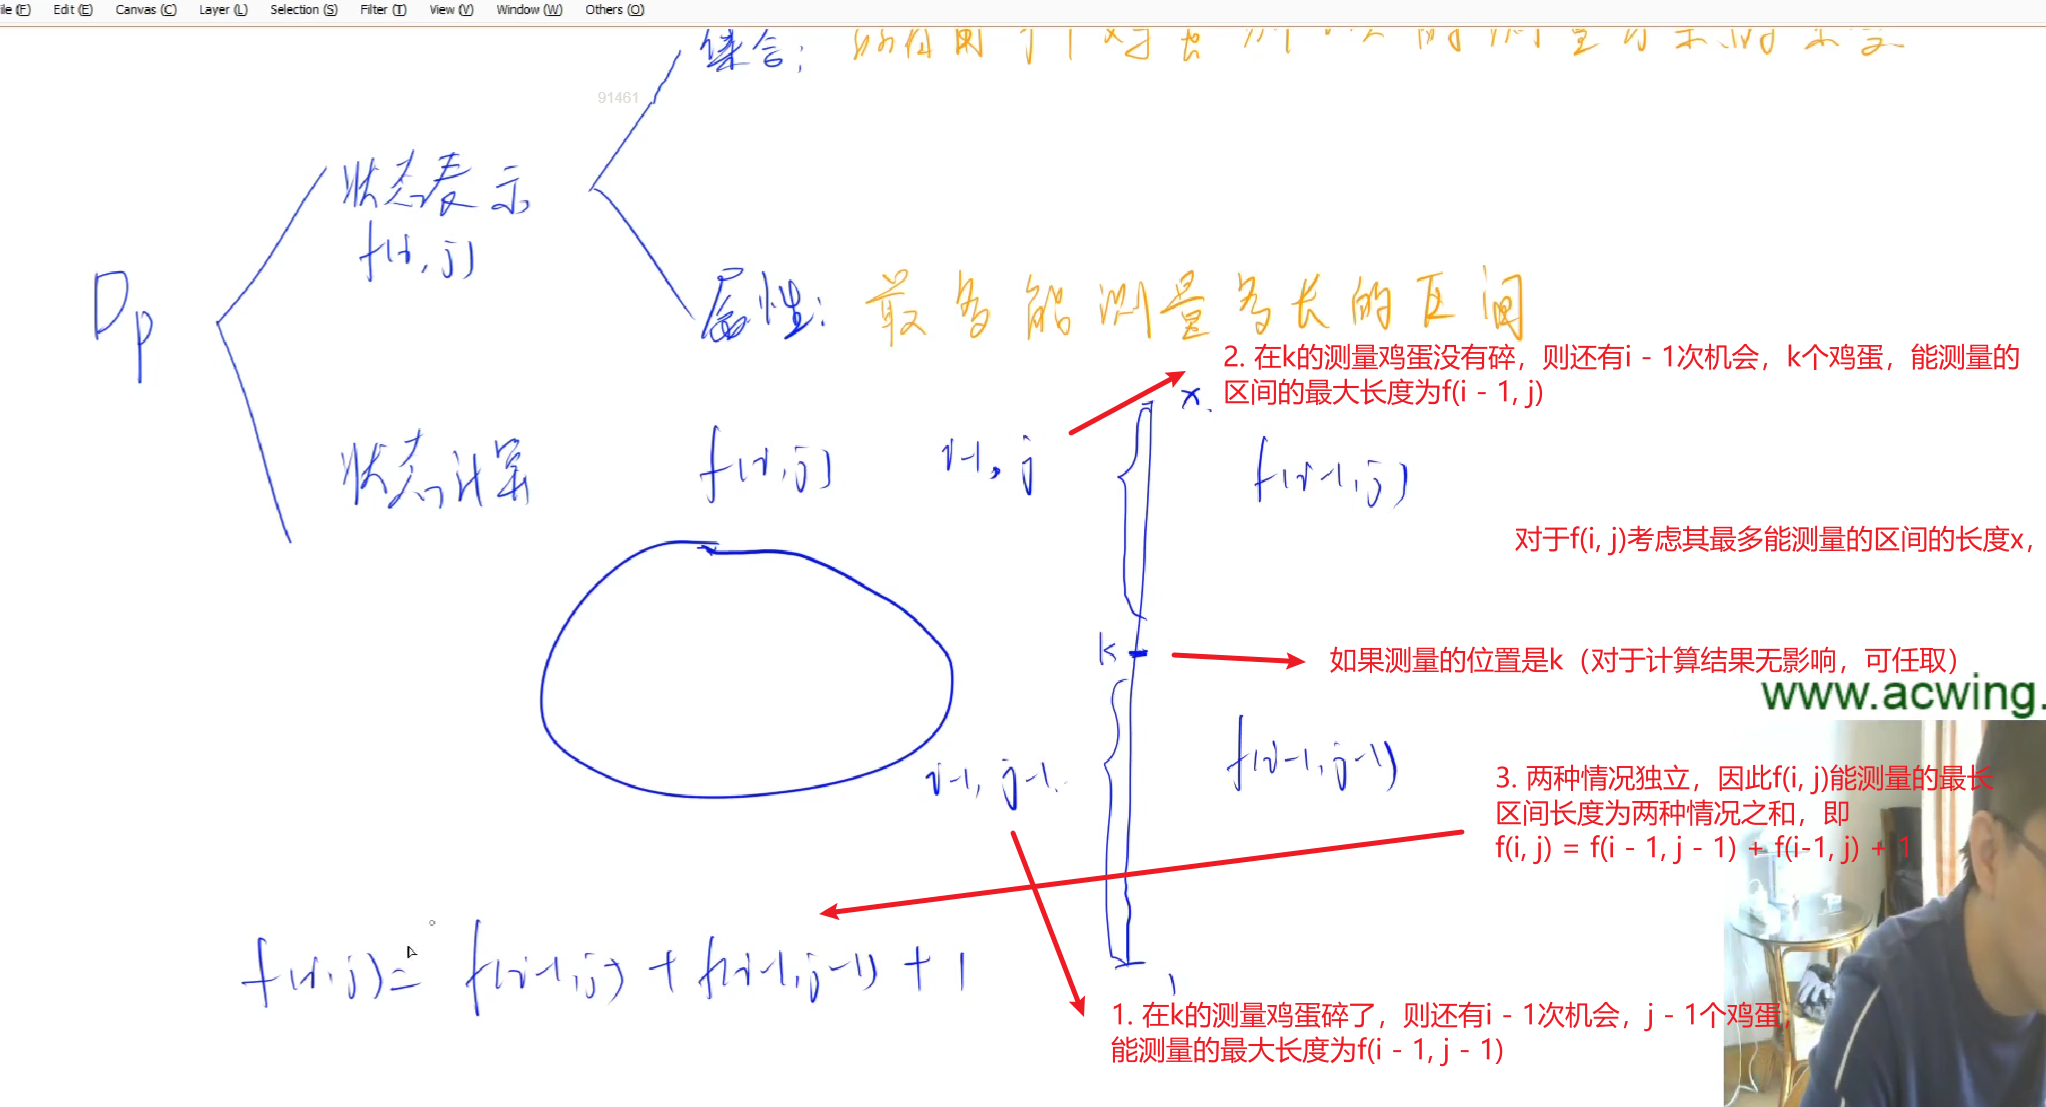 ile (F) Edit (E) Canvas (C) Layer (L) Selection (S) Filter (T) View (V) Window (W) Others (O)
集合:
91461
状态表示
f(i, j)
Dp
属性: 最多能测量多长的区间
2. 在k的测量鸡蛋没有碎，则还有i - 1次机会，k个鸡蛋，能测量的
区间的最大长度为f(i - 1, j)
x
状态计算 f(i, j) i-1, j f(i-1, j)
对于f(i, j)考虑其最多能测量的区间的长度x，
k 如果测量的位置是k（对于计算结果无影响，可任取）
www.acwing.
i-1, j-1. f(i-1, j-1)
3. 两种情况独立，因此f(i, j)能测量的最长
区间长度为两种情况之和，即
f(i, j) = f(i - 1, j - 1) + f(i-1, j) + 1
f(i, j) = f(i-1, j) + f(i-1, j-1) + 1
1. 在k的测量鸡蛋碎了，则还有i - 1次机会，j - 1个鸡蛋，
能测量的最大长度为f(i - 1, j - 1)